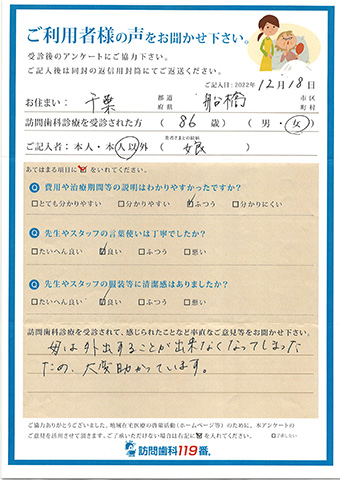 ご利用者様の声をお聞かせ下さい。
受診後のアンケートにご協力下さい。
ご記入後は同封の返信用封筒にてご返送ください。
ご記入日:2022年12月18日
お住まい: 千葉 都道府県 船橋 市区町村
訪問歯科診療を受診された方 ( 86 歳) ( 男・女 )
ご記入者:本人・本人以外 ( 娘 )
あてはまる項目に☑を入れてください。
Q 費用や治療期間等の説明はわかりやすかったですか?
□とても分かりやすい □分かりやすい ☑ふつう □分かりにくい
Q 先生やスタッフの言葉使いは丁寧でしたか?
□たいへん良い ☑良い □ふつう □悪い
Q 先生やスタッフの服装等に清潔感はありましたか?
□たいへん良い ☑良い □ふつう □悪い
訪問歯科診療を受診されて、感じられたことなど率直なご意見等をお聞かせ下さい。
母は外出することが出来なくなってしまった
ため、大変助かっています。
ご協力ありがとうございました。地域在宅医療の啓蒙活動(ホームページ等)のために、本アンケートの
ご意見を活用させて頂きます。ご了承いただけない場合は右記に☑を入れてください。 □了承しない
訪問歯科119番。